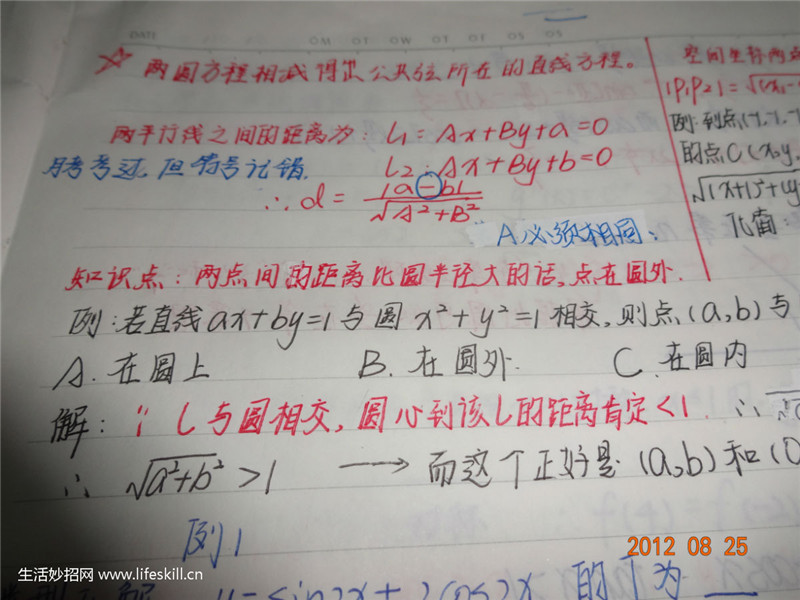 DATE
☆ 两圆方程相减得出公共弦所在的直线方程。
两平行线之间的距离为: L1 = Ax+By+a=0
月考考过,但符号记错.
L2: Ax+By+b=0
∴ d = |a-b| / √A²+B²
A必须相同:
空间坐标两点
|P1P2| = √(x1-
例:到点(-1,-1,-
的点C(x,y,
√(x+1)²+(y
化简:
知识点: 两点间的距离比圆半径大的话,点在圆外.
例:若直线ax+by=1与圆x²+y²=1相交,则点(a,b)与
A. 在圆上 B. 在圆外. C. 在圆内
解: ∵ L与圆相交, 圆心到该L的距离肯定<1. ∴
∴ √a²+b² >1 → 而这个正好是(a,b)和(0
例1
y=sin2x+2cos2x的T为
2012 08 25
生活妙招网 www.lifeskill.cn